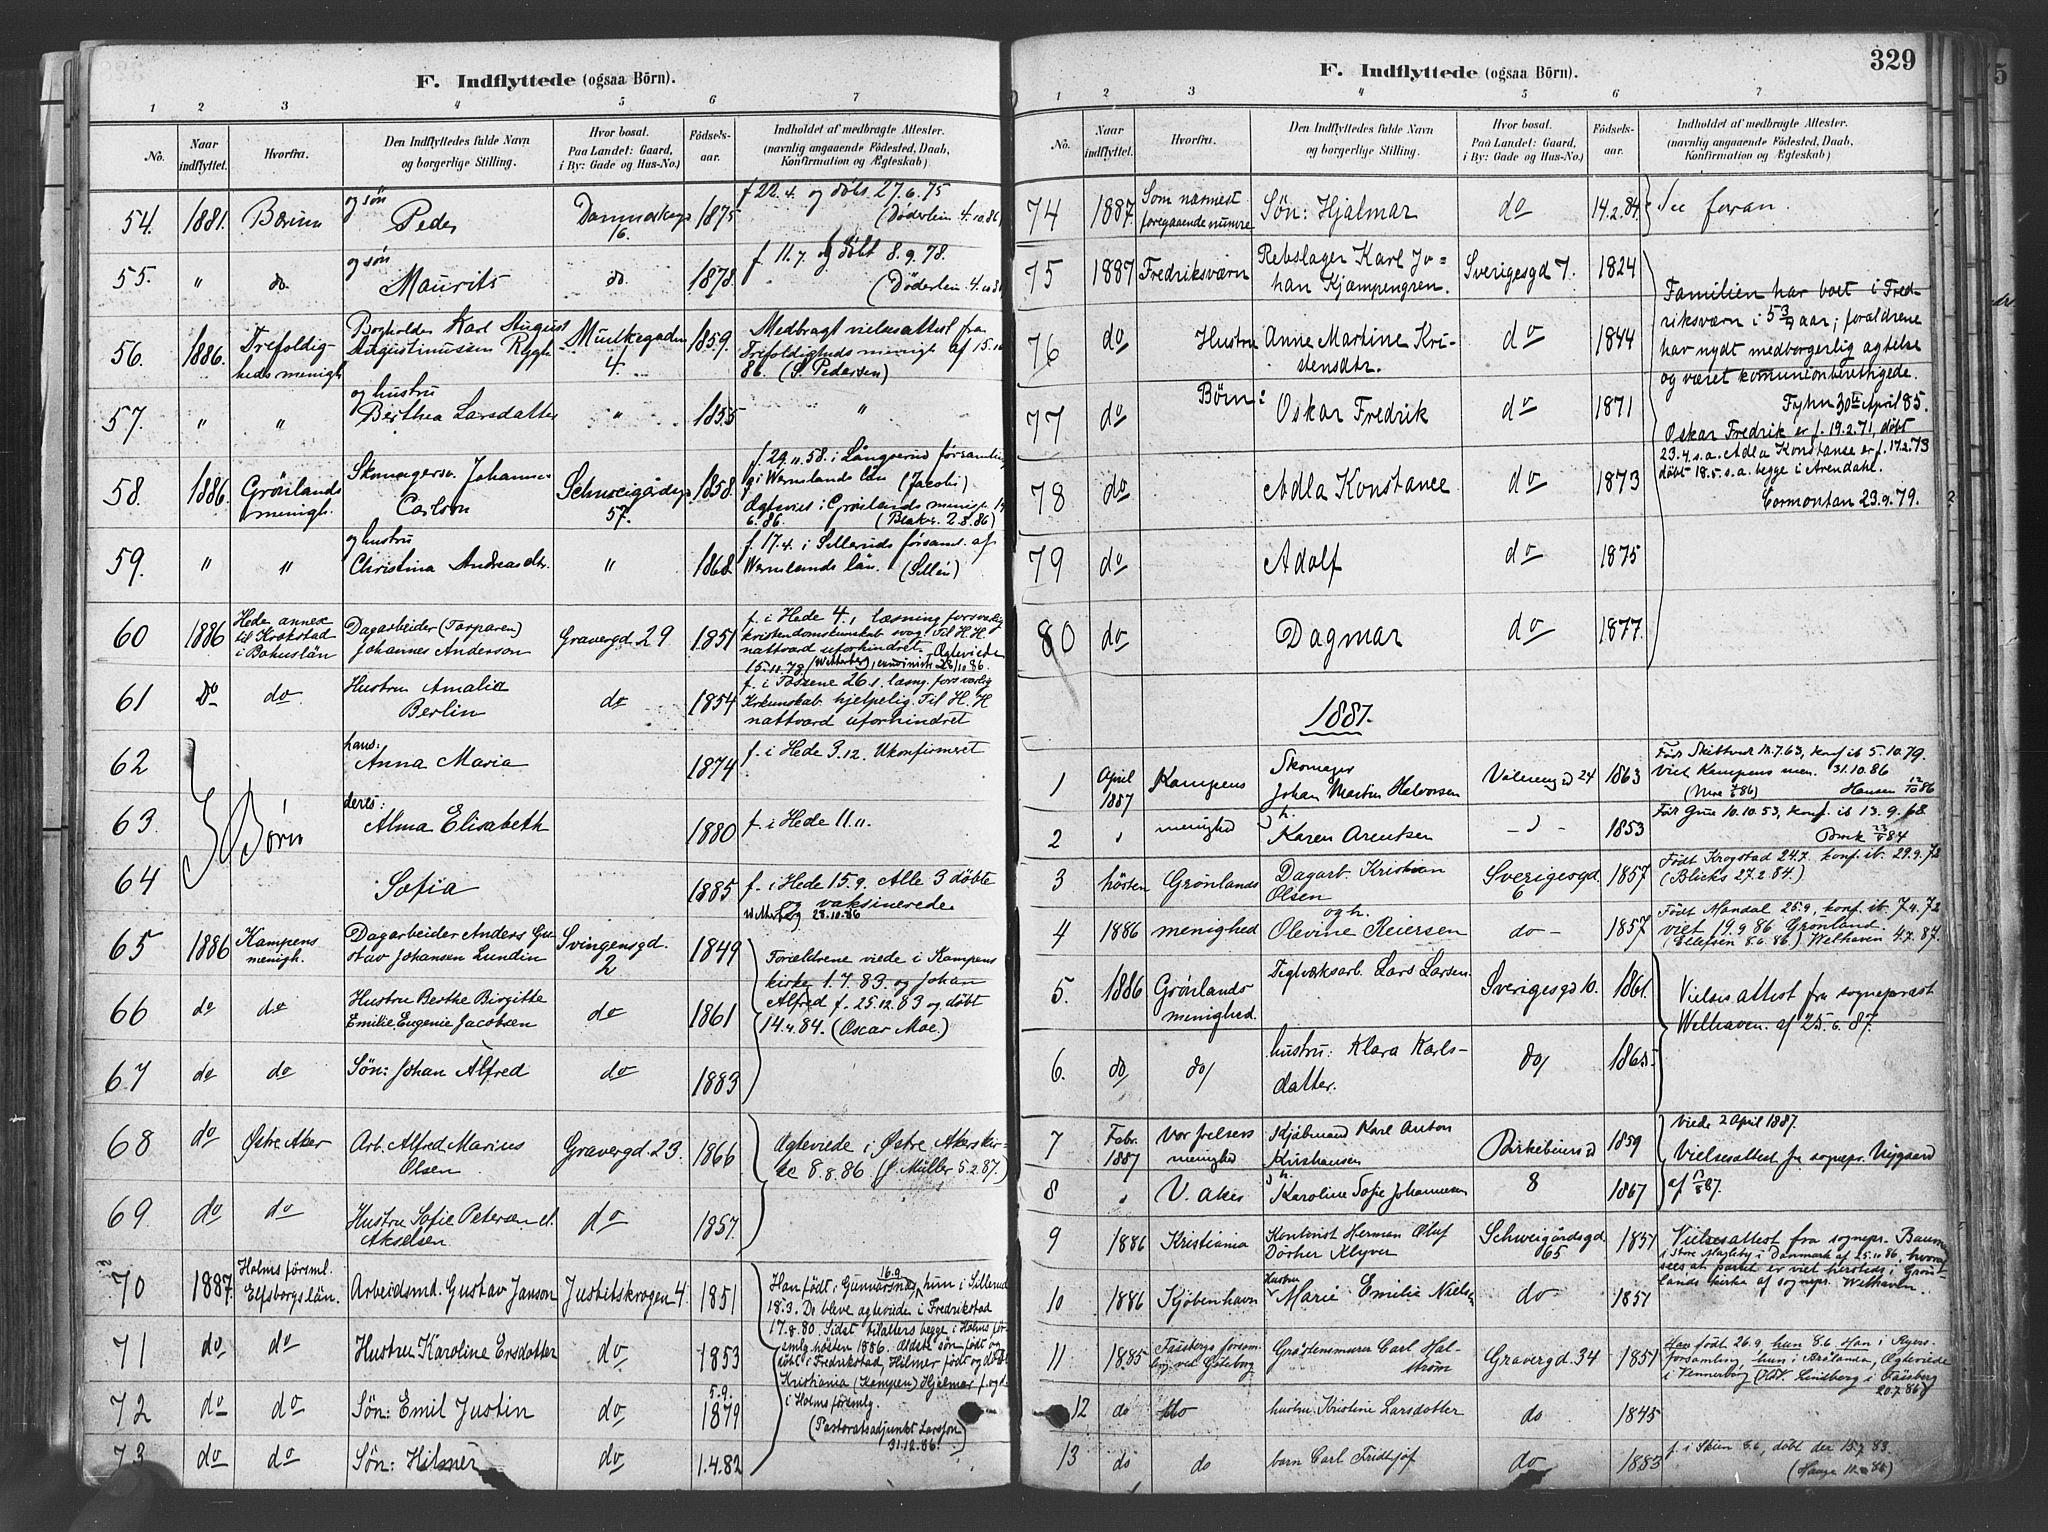 F. Indflyttede (ogsaa Börn).
1 2 3 4 5 6 7
No. Naar indflyttet. Hvorfra. Den Indflyttedes fulde Navn og borgerlige Stilling. Hvor bosat. Paa Landet: Gaard, i By: Gade og Hus-No.) Födselsaar. Indholdet af medbragte Attester. (navnlig angaaende Födested, Daab, Konfirmation og Ægteskab)
54. 1881. Bærum og søn Peder 16. 1875 f 22.4. og døbt 27.6.75
(Døderlein 4.10.86)
55. " do. og søn Maurits do. 1878. f. 11.7 og døbt 8.9.78.
(Døderlein 4.10.86)
56. 1886. Trefoldig-
heds menigh. Bogholder Karl August
Augustinussen Rygh 4. 1859. Medbragt vielsesattest fra
Trefoldigheds menigh. af 15.10
86. (S. Pedersen)
57. " " og hustru
Berthea Larsdatter " 1855 "
58. 1886. Grønlands
menigh. Skomagersv. Johannes
Carlson Schweigårdsg.
57. 1858. f. 29.11.58. i Långserud församling
i Wermlands län (Jacobi)
Ægteviet i Grønlands menigh. 14
6.86. 2.8.86)
59. " " og hustru
Christina Andreasdtr. " 1868. f. 17.4. i Silleruds församl. af
Wermlands län. (Sillén)
60 1886 Hede annex
til Krokstad
i Bohuslän Dagarbeider (Torparen)
Johannes Anderson Gravergd 29 1851 f. i Hede 4.1, læsning forsvarlig
kristendomskunskab svag. Til H. H.
nattvard uforhindret. Ægteviede
15.11.78.
61 Do do. Hustru Amalia
Berlin do 1854 f. i Tossene 26.1, læsng. forsvarlig
Krkunskab hjelpelig. Til H. H
nattvard uforhindret
62 hans:
Anna Maria 1874 f. i Hede 3.12. Ukonfirmeret
63. Børn deres:
Alma Elisabeth 1880 f. i Hede 11.11.
64 Sofia 1885 f. i Hede 15.9. Alle 3 døbte
og vaksinerede.
28.10.86
65 1886 Kampens
menigh. Dagarbeider Anders Gu-
stav Johansen Lundin Svingensgd.
2 1849 Forældrene viede i Kampens
kirke 1.7.83. og Johan
Alfred f. 25.12.83 og døbt
14.4.84. (Oscar Moe.)
66 do do Hustru Berthe Birgitte
Emilie Eugenie Jacobsen do 1861
67 do do Søn: Johan Alfred do 1883
68 do Østre Aker Arb. Alfred Marius
Olsen Gravergd. 23. 1866 Ægteviede i Østre Akers kir-
ke 8.8.86 (J. Müller 5.2.87.)
69. do do Hustru Sofie Petersen el.
Akselsen do 1857.
70 1887. Holms församl.
Elfsborgs län. Arbeidsmd. Gustav Janson Justitskrogen 4. 1851 Han född i Gunnarsnäs 16.9, hun i Sillerud
18.3. De bleve ægteviede i Fredrikstad
17.8.80. Sidst tilholters begge i Holms för-
smlg. høsten 1886. Ældste søn født og
døbt i Fredrikstad, Hilmer født og døbt
Kristiania (Kampen) Hjelmar f. og d.
i Holms försmlg.
(Pastoratsadjunkt Larsson
31.12.86.)
71 do do Hustru Karoline Ersdotter do. 1853
72 do do Søn: Emil Justin do 5.9.
1879
73 do do Søn: Hilmer do 1.4.82
329
F. Indflyttede (ogsaa Börn).
1 2 3 4 5 6 7
No. Naar indflyttet. Hvorfra. Den Indflyttedes fulde Navn og borgerlige Stilling. Hvor bosat. Paa Landet: Gaard, i By: Gade og Hus-No.) Födselsaar. Indholdet af medbragte Attester. (navnlig angaaende Födested, Daab, Konfirmation og Ægteskab)
74 1887. Som nærmest
foregaaende numre Søn: Hjalmar do 14.2.84. See foran.
75 1887 Fredriksværn Rebslager Karl Jo-
han Kjempengren. Sverigesgd 7. 1824 Familien har boet i Fred-
riksværn i 5 3/4 aar; forældrene
har nydt medborgerlig agtelse
og været komunionberettigede.
Fyhn 30te April 85.
Oskar Fredrik er f. 19.2.71, døbt
23.4. s.a. Adla Konstanse er f. 17.2.73
døbt 18.5. s.a. begge i Arendahl.
Cormontan 23.9.79.
76 do Hustru Anne Martine Kri-
stensdtr. do 1844
77 do Børn: Oskar Fredrik do 1871
78 do Adla Konstance do 1873
79 do Adolf do 1875
80 do Dagmar do 1877.
1887.
1 April
1887 Kampens Skomager
Johan Martin Halvorsen 24 1863 10.7.63, konf. ib 5.10.79.
viet Kampens men. 31.10.86
2 menighed h.
Karen Arentsen 1853 10.10.53, konf. ib 13.9.68.
3 høsten Grønlands Dagarb. Kristian
Olsen Sverigesgd.
6 1857 Født Krogstad 24.7. konf. ib. 29.9.72
(Blicks 27.2.84.)
4 1886 menighed og h.
Olevine Reiersen do 1857 Født Mandal 25.9, konf. ib. 7.4.72
viet 19.9 86 Grønland.
(Ellefsen 8.6.86.) Welhaven 4.7.87.
5. 1886 Grønlands
menighed. Teglværksarb. Lars Larsen. Sverigesgd 10. 1861. Vielsesattest fra sogneprest
Welhaven. af 25.6.87.
6. do do hustru: Klara Karls-
datter. do 1865.
7 Febr.
1887 Vor frelsers
menighed Karl Anton
Kristiansen Birkebeinergd 1859 viede 2 April 1887.
Vielsesattest fr sognepr.
8 V. Aker h.
Karoline Sofie Johannesen 8 1867 af 87.
9 1886 Kristiania Kontorist Herman Oluf
Dörher Klyver Schweigårdsgd
65 1857 Vielsesattest fra sognepr.
i Store Magleby i Danmark af 25.10.86, hvoraf
sees at parret er viet hersteds i Grøn-
lands kirke af sognepr. Welhaven.
10 1886 Kjøbenhavn Hustru
Marie Emilie Nielsen do 1857
11 1885 Carl Hal-
ström Gravergd. 34 1851 Han född 26.9, hun 8.6. Han i
församling, hun i Brålanda, Ægteviede
i Lindberg i
20.7.86)
12 do do hustru Kristine Larsdotter do 1845
13 do do barn Carl Fridtjof do 1883 f. i Skien 8.6, døbt der 15.7.83.